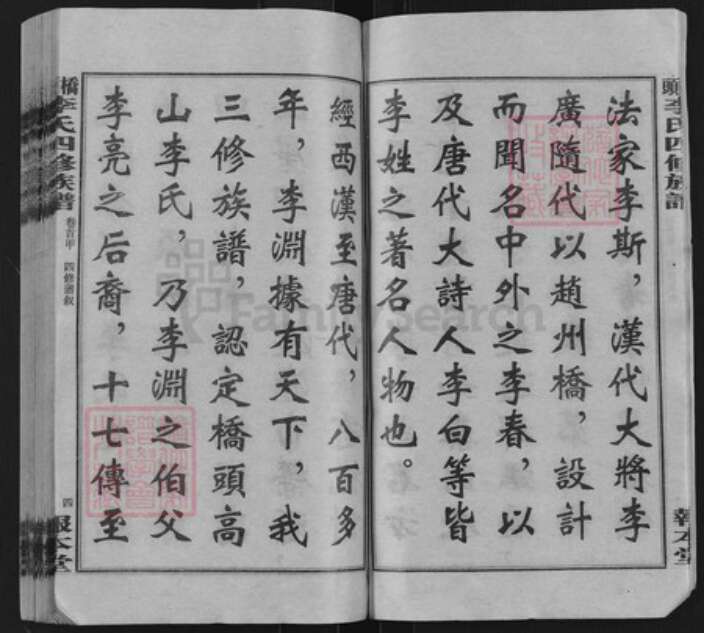 頭李氏四修族譜
報本堂
法家李斯，漢代大將李
廣隨代以趙州橋，設計
而聞名中外之李春，以
及唐代大詩人李白等皆
李姓之著名人物也。
經西漢至唐代，八百多
年，李淵據有天下，我
三修族譜，認定橋頭高
山李氏，乃李淵之伯父
李亮之后裔，十七傳至
橋李氏四修族譜
卷首甲 四修譜敘
四
報本堂
FamilySearch